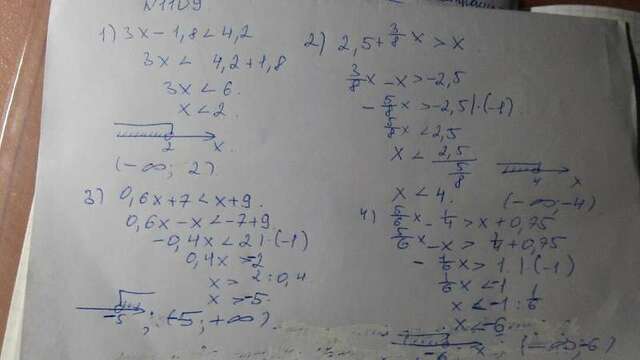 N1109
1) 3x - 1,8 < 4,2
3x < 4,2 + 1,8
3x < 6.
x < 2
2 x
(-∞; 2).
2) 2,5 + 3/8 x > x
3/8 x - x > -2,5
- 5/8 x > -2,5 | · (-1)
5/8 x < 2,5
x < 2,5 / 5/8
x < 4.
4 x
(-∞; -4)
3) 0,6x + 7 < x + 9.
0,6x - x < -7 + 9.
-0,4x < 2 | · (-1)
0,4x > -2
x > -2 : 0,4
x > -5.
-5 ; (-5; +∞).
4) 5/6 x - 1/4 > x + 0,75
5/6 x - x > 1/4 + 0,75
- 1/6 x > 1 | · (-1)
1/6 x < -1
x < -1 : 1/6
x < -6
-6 x (-∞; -6)